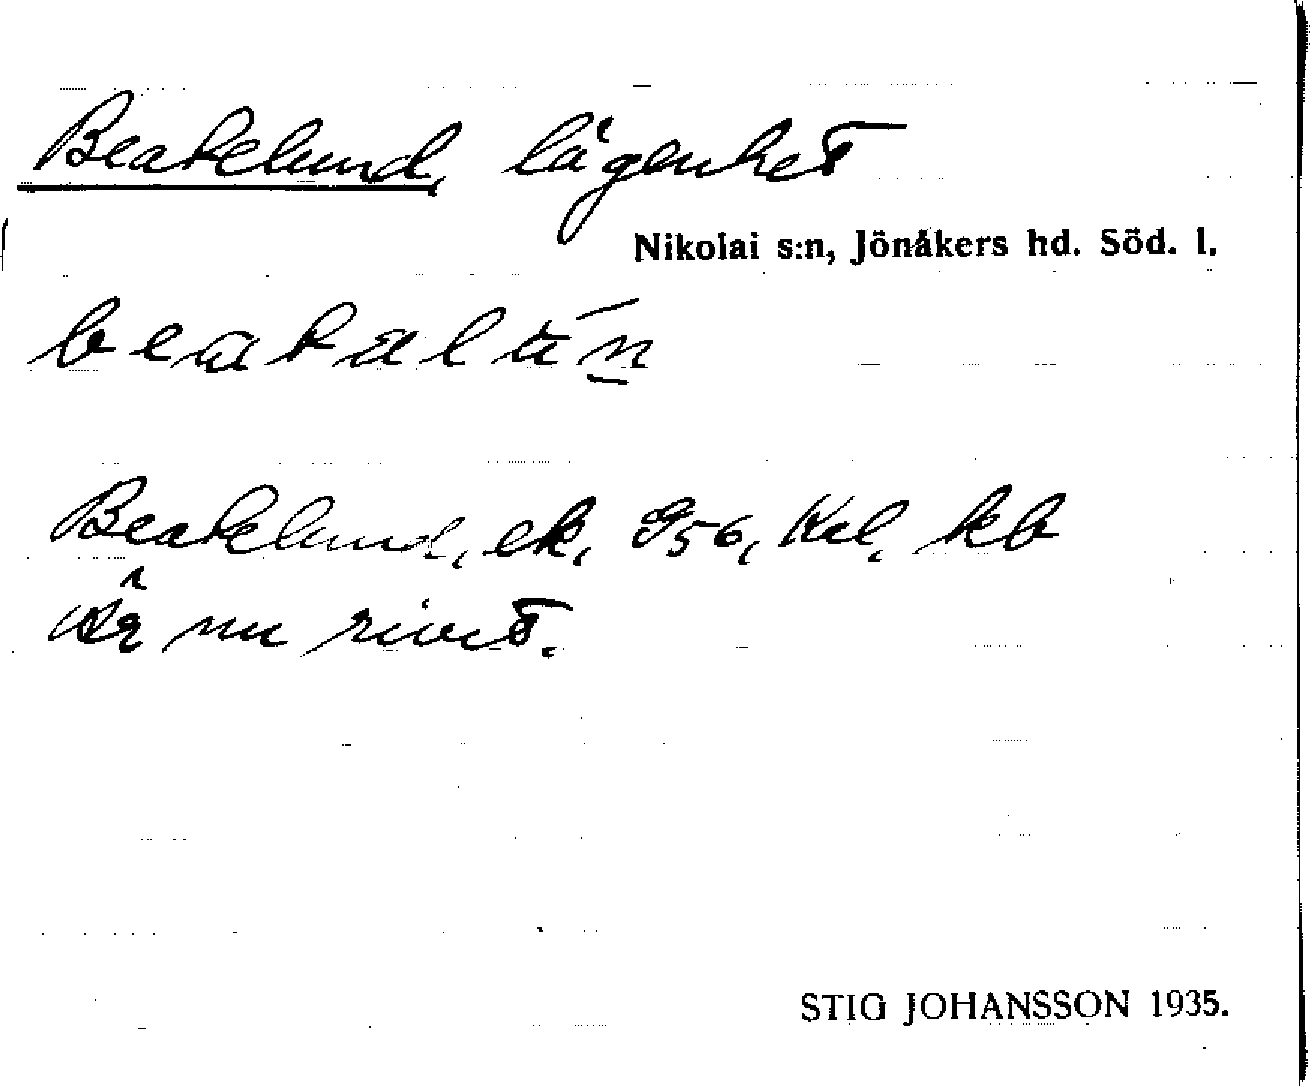 Beatelund, lägenhet
Nikolai s:n, Jönåkers hd. Söd. l.
Beatelund, ek. 956, Kel, kb
Är nu rivet.
STIG JOHANSSON 1935.